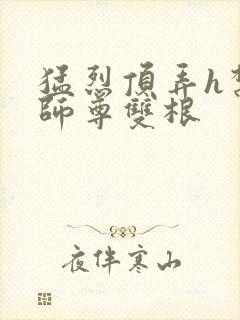 猛烈頂弄h
師尊雙根
夜伴寒山